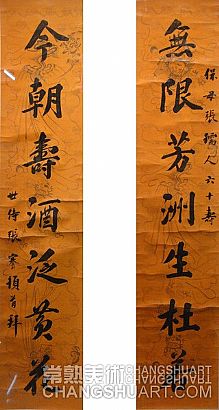 保母張孺人六十壽
無限芳洲生杜若
今朝壽酒泛黄花
世侍張謇頓首拜
常熟美術
CHANGSHUART
常熟美術
CHANGSHUART